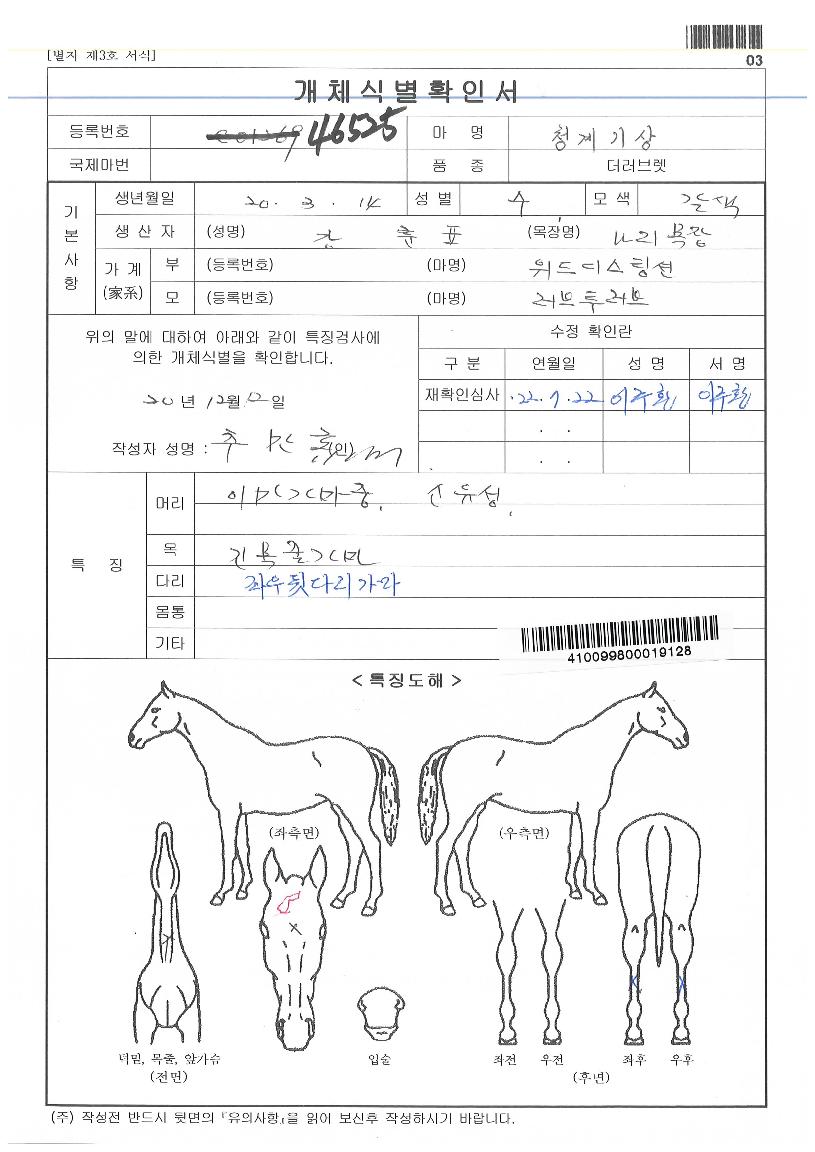 [별지 제3호 서식]
03
개체식별확인서
등록번호 46525 마 명 청계기상
국제마번 품 종 더러브렛
기본사항
생년월일 20. 3. 14 성 별 수 모 색 갈색
생 산 자 (성명) (목장명)
가 계 (家系) 부 (등록번호) (마명) 위드디스팅션
모 (등록번호) (마명) 러브투러브
위의 말에 대하여 아래와 같이 특징검사에
의한 개체식별을 확인합니다.
20년 12월 12일
작성자 성명 : (인)
수정 확인란
구 분 연월일 성 명 서 명
재확인심사 .22.7.22 이주환 이주환
. .
. .
특 징
머리 이마가마중. 소유성.
목
다리 좌우뒷다리가마
몸통
기타
410099800019128
< 특징도해 >
(좌측면) (우측면)
턱밑, 목줄, 앞가슴 입술 좌전 우전 좌후 우후
(전면) (후년)
(주) 작성전 반드시 뒷면의 『유의사항』을 읽어 보신후 작성하시기 바랍니다.